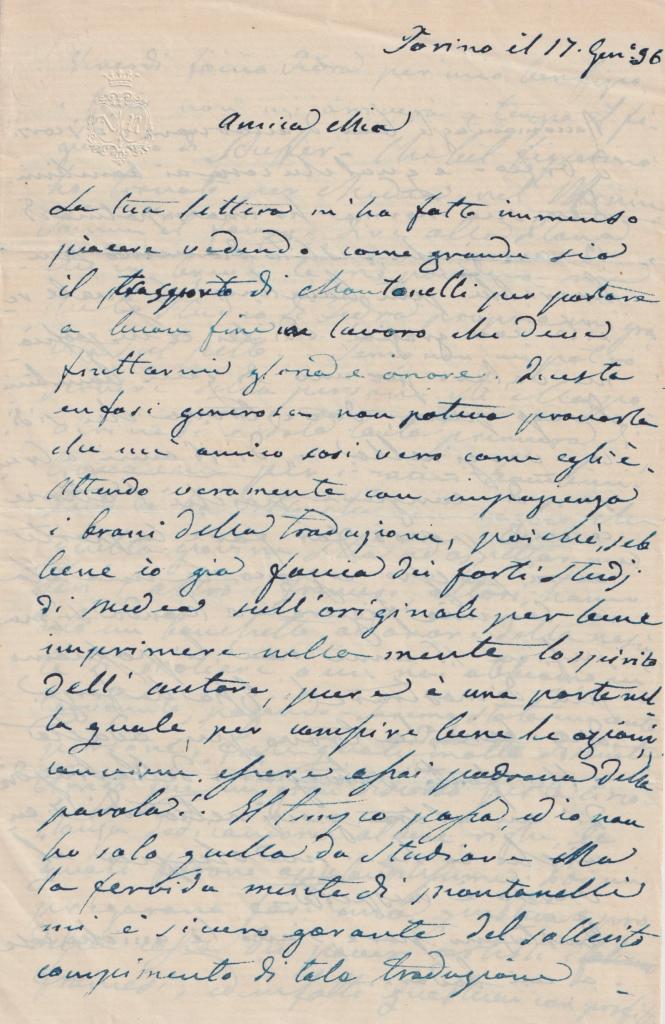 Torino il 17. Gen: 56
Amica Mia
La tua lettera m'ha fatto immenso
piacere vedendo come grande sia
il trasporto di Montanelli per portare
a buon fine un lavoro che deve
fruttarmi gloria e onore. Questa
enfasi generosa non poteva provarla
che un amico così vero come egli è.
Attendo veramente con impazienza
i brani della traduzione, poichè, seb
bene io già faccia dei forti studj
di Medea sull'originale per bene
imprimere nella mente lo spirito
dell'autore, pure è una parte nel
la quale, per compire bene le azioni,
conviene essere assai padrona della
parola. Il tempo passa, ed io non
ho solo quella da studiare Ma
la fervida mente di Montanelli
mi è sicuro garante del sollecito
compimento di tale traduzione -